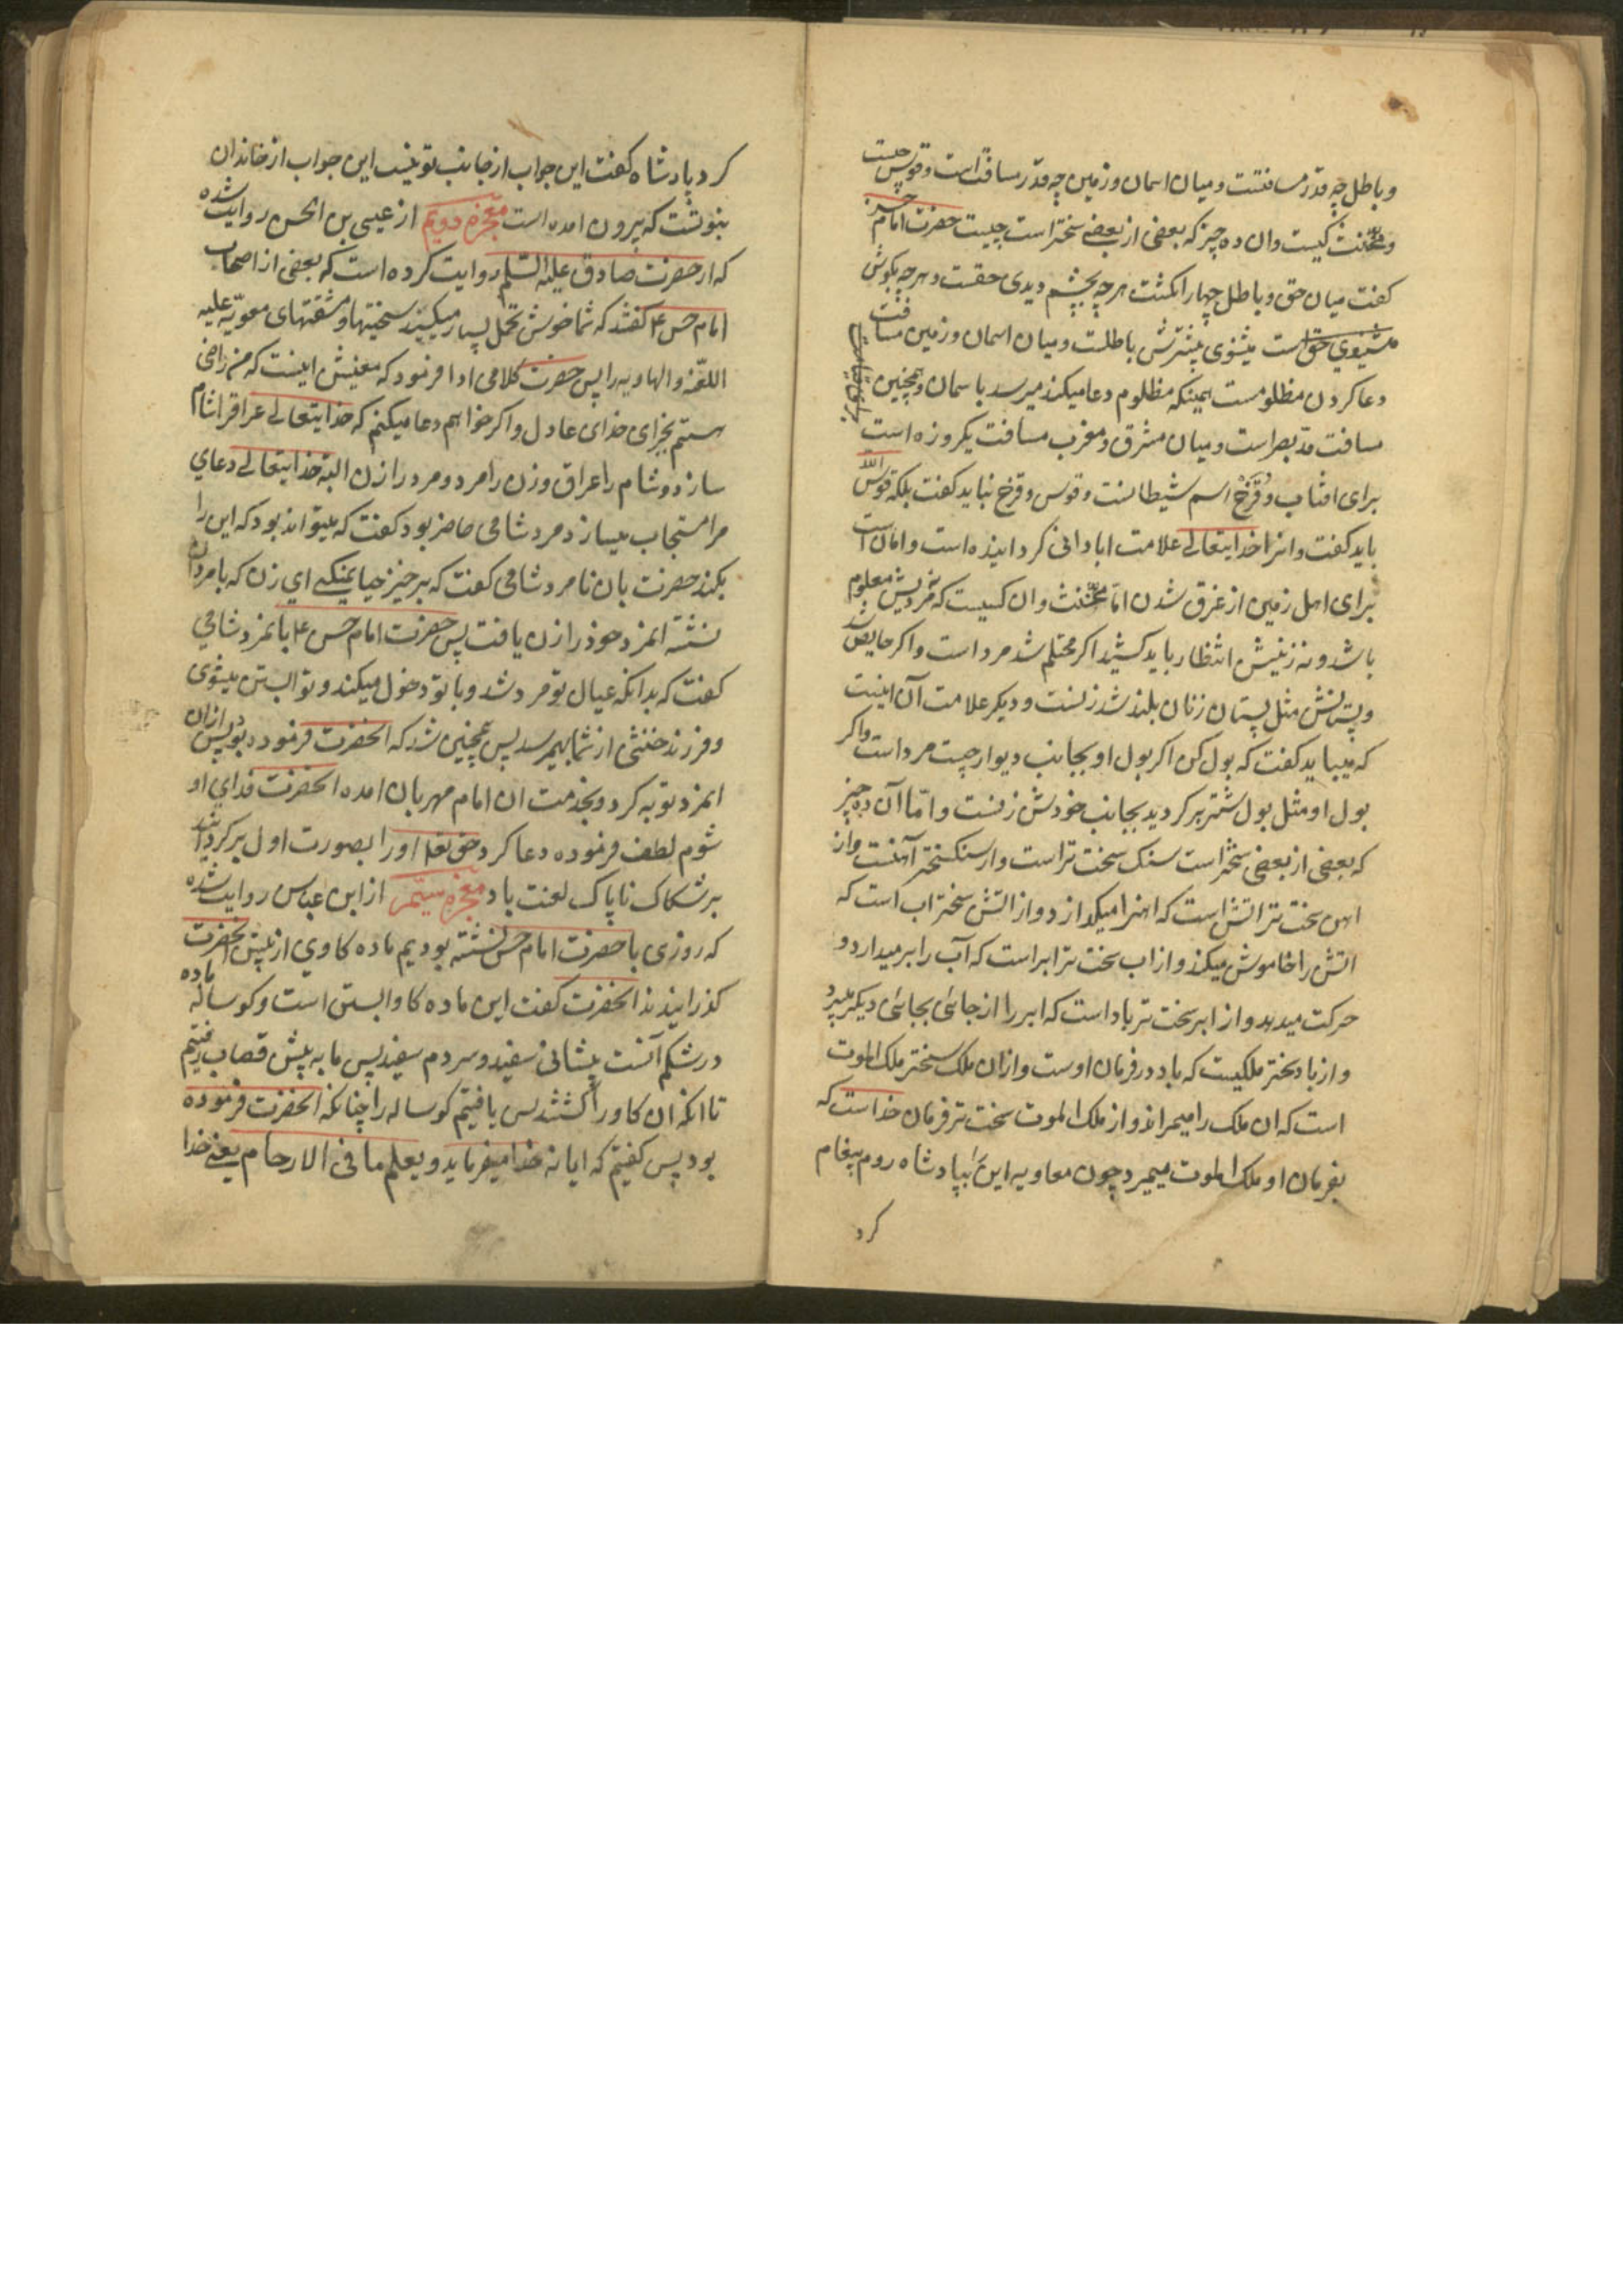 و باطل چه قدر مسافتست و میان اسمان و زمین چه قدر مسافت است و قوس چیست
و مخنث کیست و ان ده چیز که بعضی از بعضی سختر است چیست حضرت امام حسن
کفت میان حق و باطل چهار انکشت هر چه بچشم دیدی حقست و هر چه بکوش
میشنوی بیشترش باطلست و میان اسمان و زمین مسافت
دعا کردن مظلومست همینکه مظلوم دعا میکند میرسد باسمان و همچنین
مسافت مد بصر است و میان مشرق و مغرب مسافت یکروزه است
برای افتاب و قزح اسم شیطانست و قوس و قزح نباید کفت بلکه قوس الله
باید کفت و انرا خدایتعالی علامت ابادانی کردانیده است و امان است
برای اهل زمین از غرق شدن اما مخنث و ان کسیست که نه مردیش معلوم
باشد و نه زنیش انتظار باید کشید اکر محتلم شد مرد است و اکر حایض شد
و پستانش مثل پستان زنان بلند شد زنست و دیکر علامت آن اینست
که میباید کفت که بول کن اکر بول او بجانب دیوار جست مرد است و اکر
بول او مثل بول شتر بر کردید بجانب خودش زنست و امّا آن ده چیز
که بعضی از بعضی سختر است سنک سخت تر است و از سنک سختر آهنست و از
اهن سخت تر اتش است که اهنرا میکدازد و از اتش سختر اب است که
اتش را خاموش میکند و از اب سخت تر ابر است که آب را بر میدارد و
حرکت میدهد و از ابر سخت تر باد است که ابر را از جائی بجائی دیکر میبرد
و از باد سختر ملکیست که باد در فرمان اوست و از ان ملک سختر ملک الموت
است که ان ملک را میمراند و از ملک الموت سخت تر فرمان خداست که
بفرمان او ملک الموت میمیرد چون معاویه این را بپادشاه روم پیغام
کرد
کرد پادشاه کفت این جواب از جانب تو نیست این جواب از خاندان
بنوتست که بیرون امده است معجزه دویم از عیسی بن الحسن روایت شده
که از حضرت صادق علیه السلم روایت کرده است که بعضی از اصحاب
امام حسن ع کفتند که شما خوش تحمل بسیار میکنید سختیها و مشقتهای معویّه علیه
اللعّنه والهاویه را پس حضرت کلامی ادا فرمود که معنیش اینست که من راضی
هستم بجزای خدای عادل و اکر خواهم دعا میکنم که خدایتعالی عراقرا شام
سازد و شام را عراق و زن را مرد و مرد را زن البته خدایتعالی دعای
مرا مستجاب میسازد مرد شامی حاضر بود کفت که میتواند بود که این را
بکند حضرت بان نامرد شامی کفت که برخیز حیا نمیکنی ای زن که با مردان
نشسته انمرد خود را زن یافت پس حضرت امام حسن ع با نمرد شامی
کفت که بدانکه عیال تو مرد شد و با تو دخول میکند و تو ابستن میشوی
و فرزند خنثی از شما بهمرسد پس همچنین شد که انحضرت فرموده بود پس از ان
انمرد توبه کرد و بخدمت ان امام مهربان امده انحضرت فدای او
شوم لطف فرموده دعا کرد حق تعالی اورا بصورت اول بر کردانید
بر شکاک ناپاک لعنت باد معجزه سیّم از ابن عباس روایت شده
که روزی با حضرت امام حسن نشسته بودیم ماده کاوی از پیش انحضرت
کذرانیدند انحضرت کفت این ماده کاو ابستن است و کوساله ماده
در شکم آنست پیشانی سفید و سر دم سفید پس ما به پیش قصاب رفتیم
تا انکه ان کاو را کشتند پس یافتیم کوساله را چنانکه انحضرت فرموده
بود پس کفتیم که ایا نه خدا میفرماید و یعلم ما فی الارحام یعنی خدا